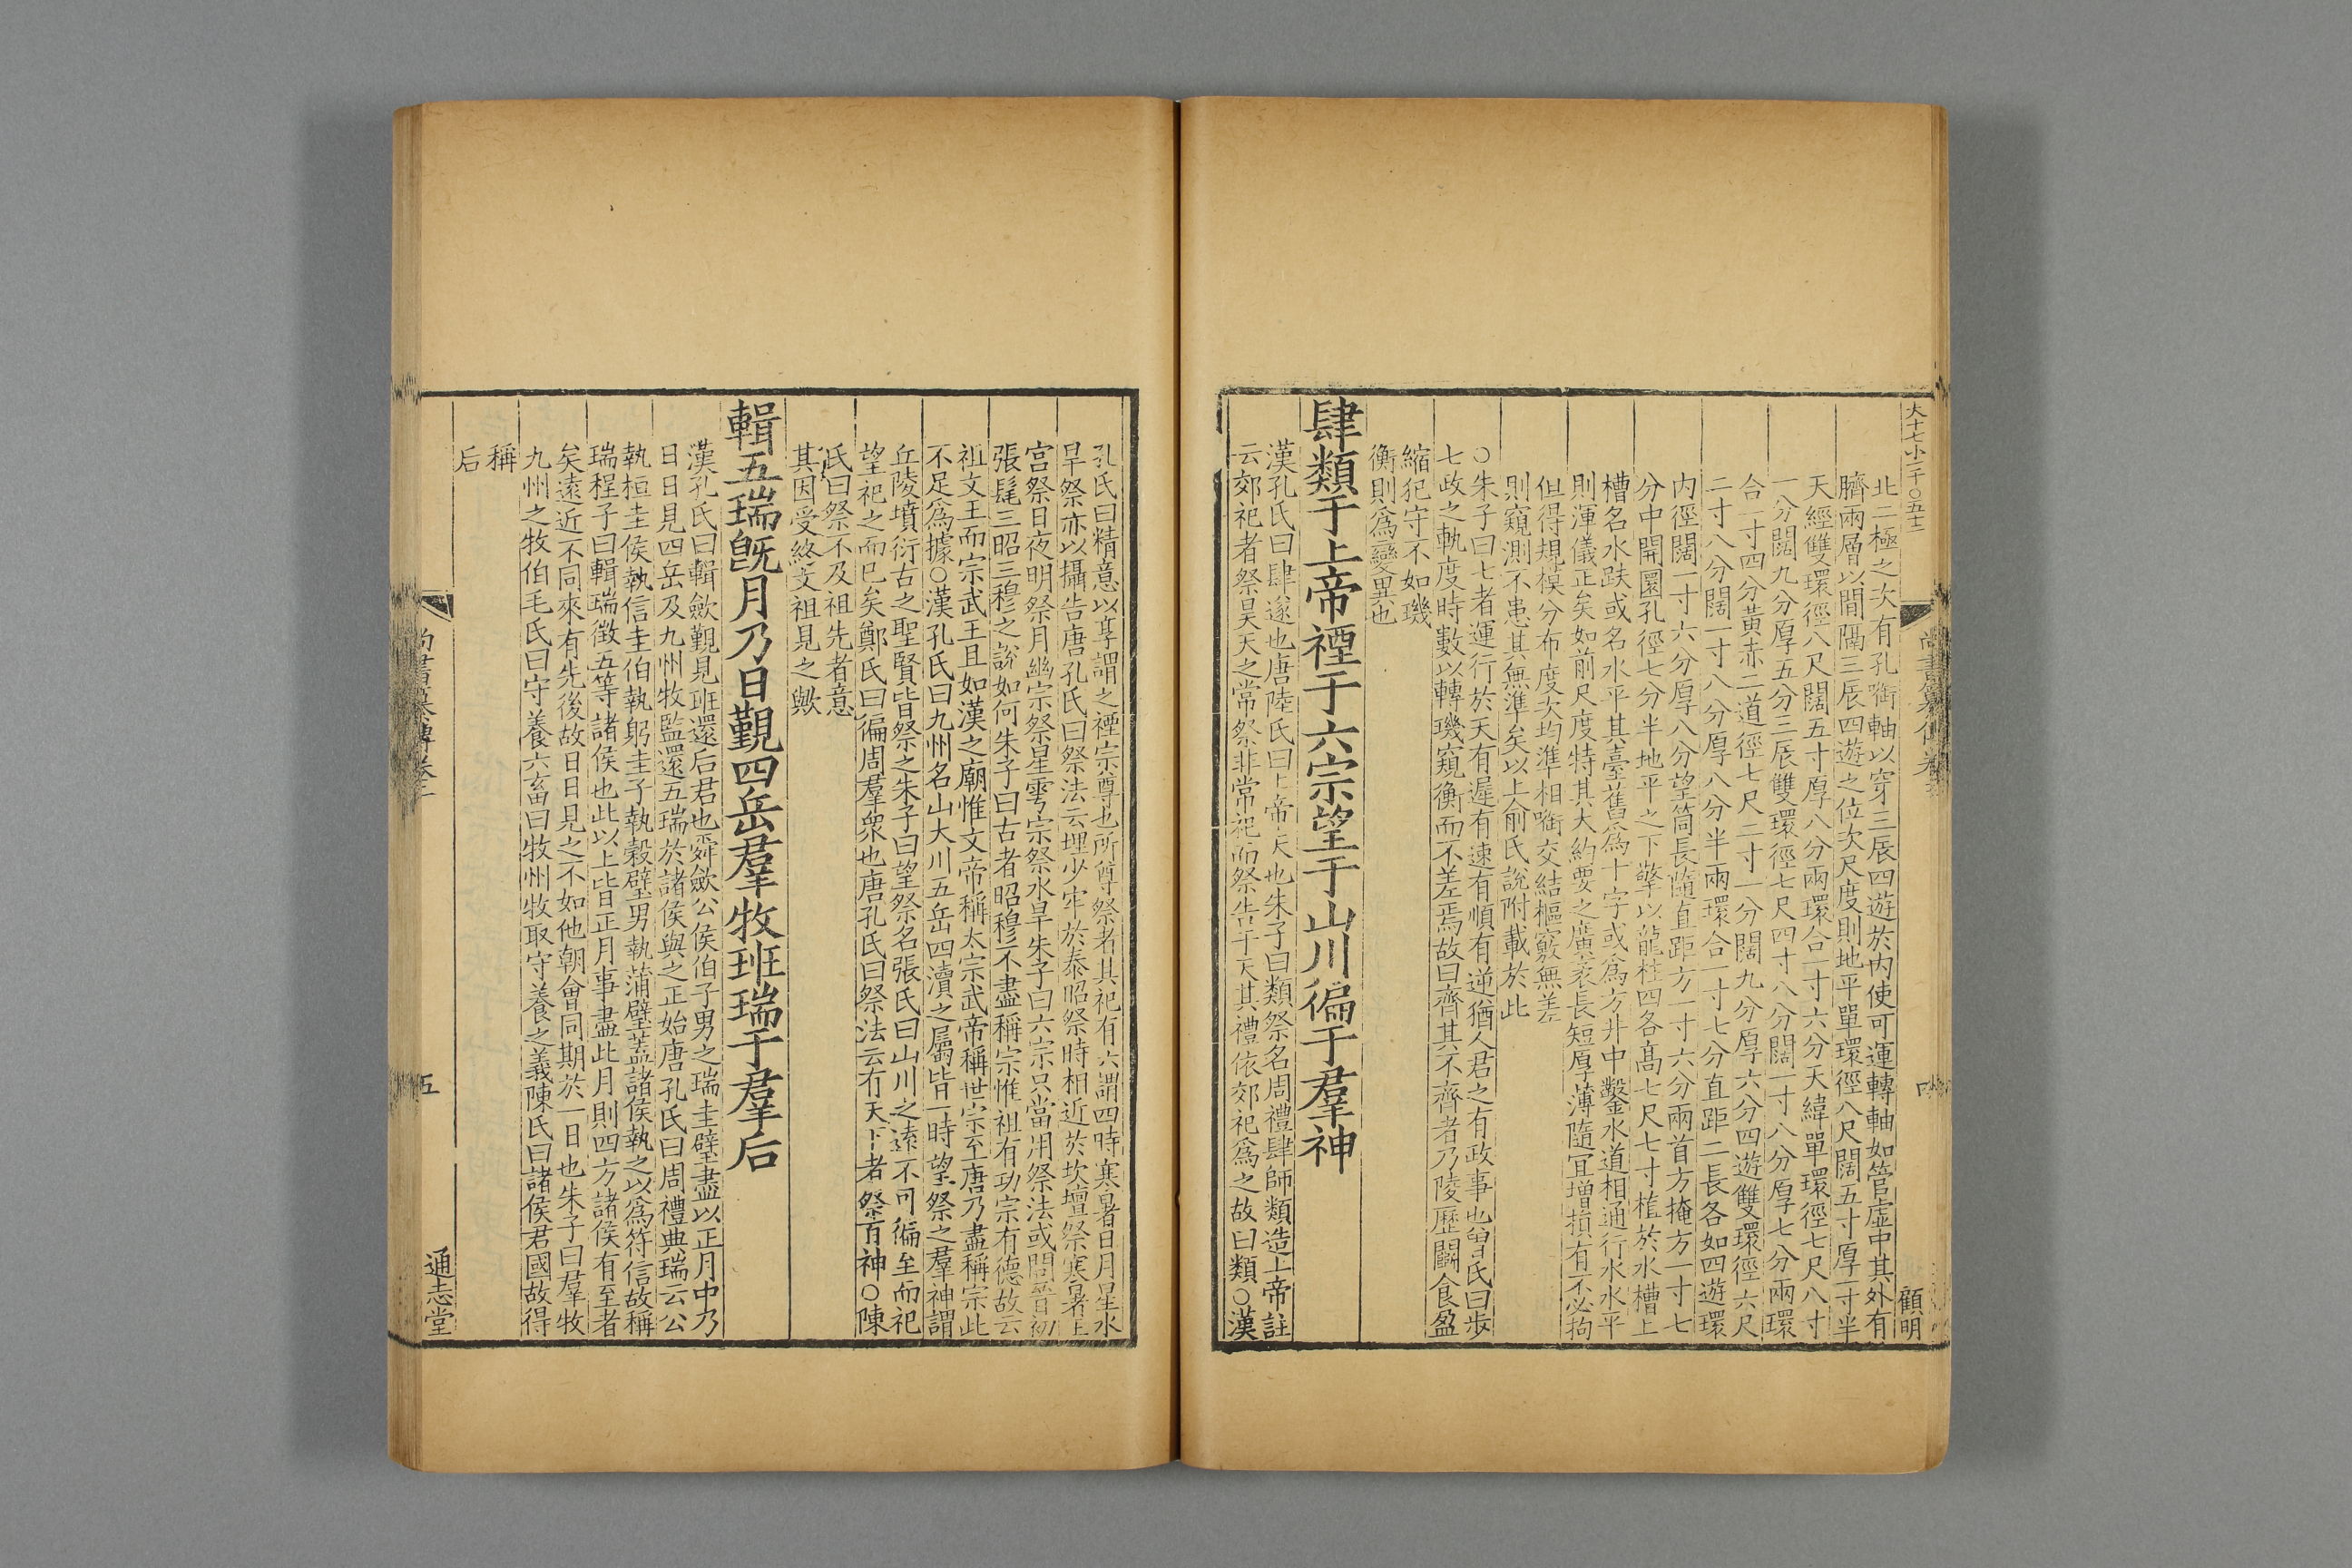 大十七小一千○五十二
北二極之次有孔銜軸以穿三辰四遊於内使可運轉軸如管虛中其外有
臍兩層以間隔三辰四遊之位次尺度則地平單環徑八尺闊五寸厚一寸半
天經雙環徑八尺闊五寸厚八分兩環合一寸六分天緯單環徑七尺八寸
一分闊九分厚五分三辰雙環徑七尺四寸八分闊一寸八分厚七分兩環
合一寸四分黃赤二道徑七尺二寸一分闊九分厚六分四遊雙環徑六尺
二寸八分闊一寸八分厚八分半兩環合一寸七分直距二長各如四遊環
内徑闊一寸六分厚八分望筒長隨直距方一寸六分兩首方掩方一寸七
分中開圜孔徑七分半地平之下擎以龍柱四各高七尺七寸植於水槽上
槽名水趺或名水平其臺舊爲十字或爲方井中鑿水道相通行水水平
則渾儀正矣如前尺度特其大約要之廣袤長短厚薄隨宜增損有不必拘
但得規模分布度次均準相銜交結樞竅無差
則窺測不患其無準矣以上俞氏說附載於此
○朱子曰七者運行於天有遲有速有順有逆猶人君之有政事也曾氏曰歩
七政之軌度時數以轉璣窺衡而不差焉故曰齊其不齊者乃陵歷闘食盈
縮犯守不如璣
衡則爲變異也
肆類于上帝禋于六宗望于山川徧于羣神
漢孔氏曰肆遂也唐陸氏曰上帝天也朱子曰類祭名周禮肆師類造上帝註
云郊祀者祭昊天之常祭非常祀而祭告于天其禮依郊祀爲之故曰類○漢
顧明
孔氏曰精意以享謂之禋宗尊也所尊祭者其祀有六謂四時寒暑日月星水
旱祭亦以攝告唐孔氏曰祭法云埋少牢於泰昭祭時相近於坎壇祭寒暑王
宮祭日夜明祭月幽宗祭星雩宗祭水旱朱子曰六宗只當用祭法或問晉初
張髦三昭三穆之說如何朱子曰古者昭穆不盡稱宗惟祖有功宗有德故云
祖文王而宗武王且如漢之廟惟文帝稱太宗武帝稱世宗至唐乃盡稱宗此
不足爲據○漢孔氏曰九州名山大川五岳四瀆之屬皆一時望祭之羣神謂
丘陵墳衍古之聖賢皆祭之朱子曰望祭名張氏曰山川之遠不可徧至而祀
望祀之而已矣鄭氏曰徧周羣衆也唐孔氏曰祭法云有天下者祭百神○陳
氏曰祭不及祖先者意
其因受終文祖見之歟
輯五瑞旣月乃日覲四岳羣牧班瑞于羣后
漢孔氏曰輯歛覲見班還后君也舜歛公侯伯子男之瑞圭璧盡以正月中乃
日日見四岳及九州牧監還五瑞於諸侯與之正始唐孔氏曰周禮典瑞云公
執桓圭侯執信圭伯執躬圭子執穀璧男執蒲璧蓋諸侯執之以爲符信故稱
瑞程子曰輯瑞徵五等諸侯也此以上皆正月事盡此月則四方諸侯有至者
矣遠近不同來有先後故日日見之不如他朝會同期於一日也朱子曰羣牧
九州之牧伯毛氏曰守養六畜曰牧州牧取守養之義陳氏曰諸侯君國故得
稱
后
尚書纂傳卷二
五
通志堂